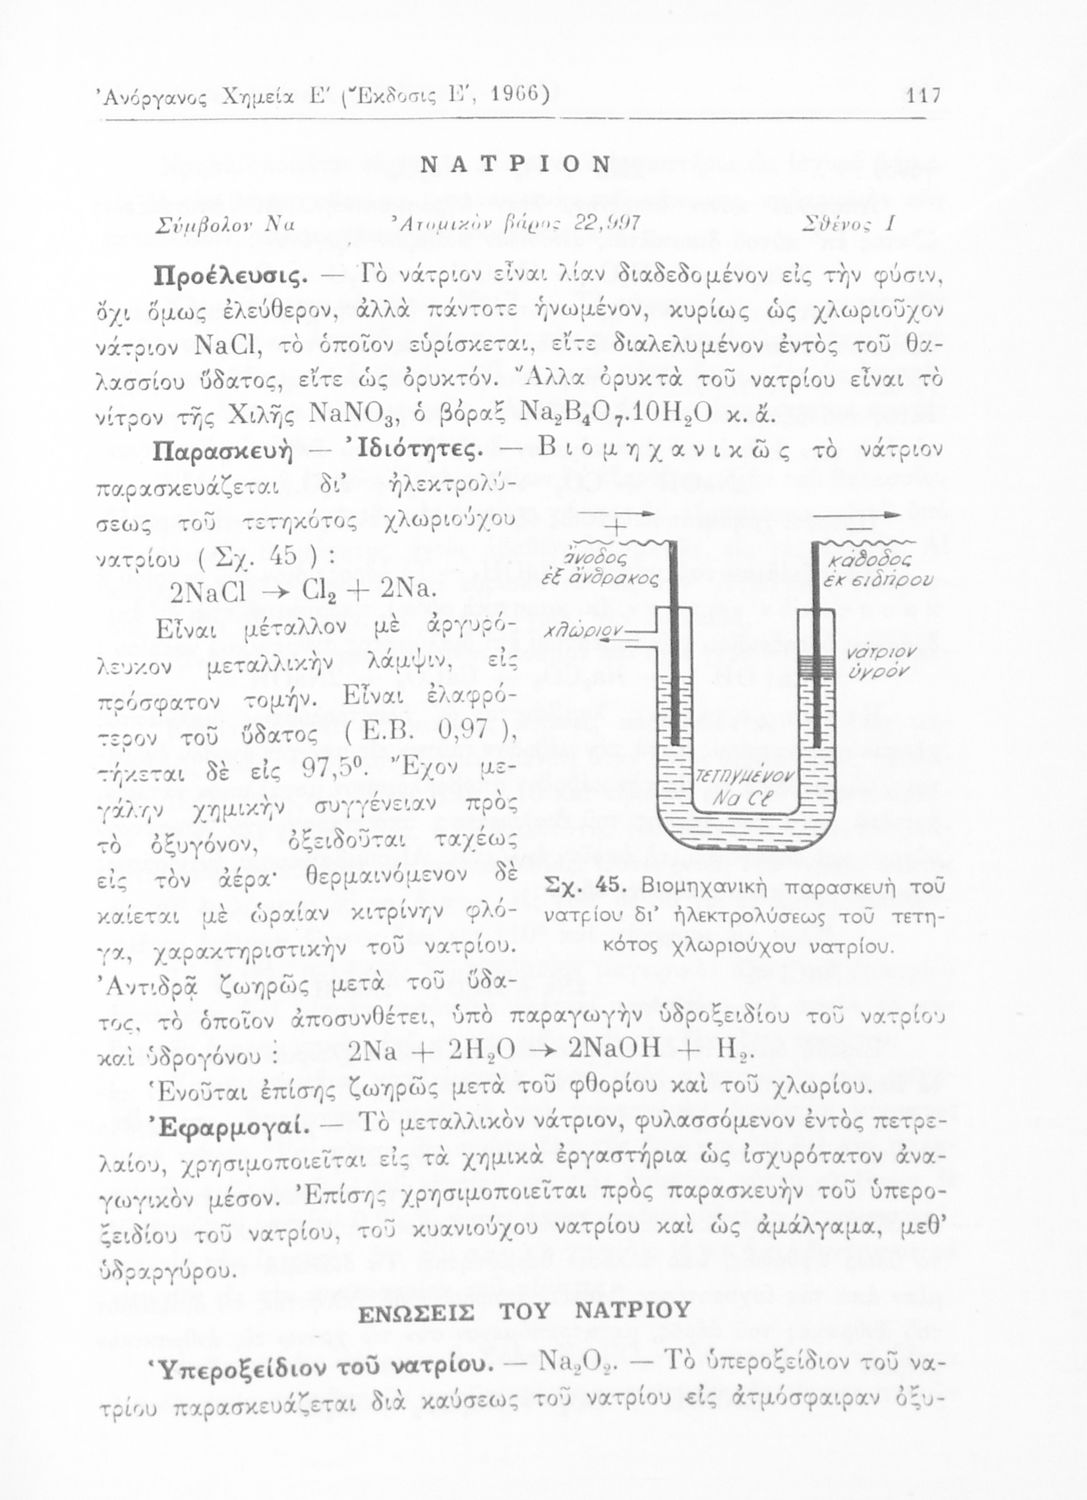 Ἀνόργανος Χημεία Ε′ (Ἔκδοσις Ε′, 1966) 117
ΝΑΤΡΙΟΝ
Σύμβολον Na Ἀτομικὸν βάρος 22,997 Σθένος I
Προέλευσις. — Τὸ νάτριον εἶναι λίαν διαδεδομένον εἰς τὴν φύσιν,
ὄχι ὅμως ἐλεύθερον, ἀλλὰ πάντοτε ἡνωμένον, κυρίως ὡς χλωριοῦχον
νάτριον NaCl, τὸ ὁποῖον εὑρίσκεται, εἴτε διαλελυμένον ἐντὸς τοῦ θα-
λασσίου ὕδατος, εἴτε ὡς ὀρυκτόν. Ἄλλα ὀρυκτὰ τοῦ νατρίου εἶναι τὸ
νίτρον τῆς Χιλῆς NaNO₃, ὁ βόραξ Na₂B₄O₇.10H₂O κ. ἄ.
Παρασκευὴ — Ἰδιότητες. — Βιομηχανικῶς τὸ νάτριον
παρασκευάζεται δι' ἠλεκτρολύ-
σεως τοῦ τετηκότος χλωριούχου
νατρίου ( Σχ. 45 ) :
2NaCl → Cl₂ + 2Na.
Εἶναι μέταλλον μὲ ἀργυρό-
λευκον μεταλλικὴν λάμψιν, εἰς
πρόσφατον τομήν. Εἶναι ἐλαφρό-
τερον τοῦ ὕδατος ( Ε.Β. 0,97 ),
τήκεται δὲ εἰς 97,5⁰. Ἔχον με-
γάλην χημικὴν συγγένειαν πρὸς
τὸ ὀξυγόνον, ὀξειδοῦται ταχέως
εἰς τὸν ἀέρα· θερμαινόμενον δὲ
καίεται μὲ ὡραίαν κιτρίνην φλό-
γα, χαρακτηριστικὴν τοῦ νατρίου.
Ἀντιδρᾷ ζωηρῶς μετὰ τοῦ ὕδα-
+ −
ἄνοδος
ἐξ ἄνθρακος
κάθοδος
ἐκ σιδήρου
χλώριον
νάτριον
ὑγρόν
τετηγμένον
Na Cl
Σχ. 45. Βιομηχανικὴ παρασκευὴ τοῦ
νατρίου δι' ἠλεκτρολύσεως τοῦ τετη-
κότος χλωριούχου νατρίου.
τος, τὸ ὁποῖον ἀποσυνθέτει, ὑπὸ παραγωγὴν ὑδροξειδίου τοῦ νατρίου
καὶ ὑδρογόνου : 2Na + 2H₂O → 2NaOH + H₂.
Ἑνοῦται ἐπίσης ζωηρῶς μετὰ τοῦ φθορίου καὶ τοῦ χλωρίου.
Ἐφαρμογαί. — Τὸ μεταλλικὸν νάτριον, φυλασσόμενον ἐντὸς πετρε-
λαίου, χρησιμοποιεῖται εἰς τὰ χημικὰ ἐργαστήρια ὡς ἰσχυρότατον ἀνα-
γωγικὸν μέσον. Ἐπίσης χρησιμοποιεῖται πρὸς παρασκευὴν τοῦ ὑπερο-
ξειδίου τοῦ νατρίου, τοῦ κυανιούχου νατρίου καὶ ὡς ἀμάλγαμα, μεθ'
ὑδραργύρου.
ΕΝΩΣΕΙΣ ΤΟΥ ΝΑΤΡΙΟΥ
Ὑπεροξείδιον τοῦ νατρίου. — Na₂O₂. — Τὸ ὑπεροξείδιον τοῦ να-
τρίου παρασκευάζεται διὰ καύσεως τοῦ νατρίου εἰς ἀτμόσφαιραν ὀξυ-